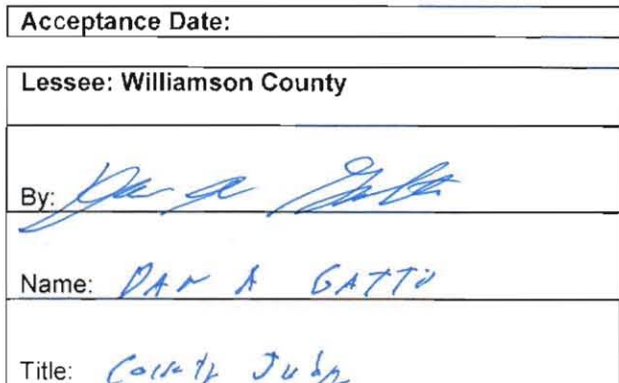 Acceptance Date:
Lessee: Williamson County
By:
Name: DAN A GATTO
Title: County Judge